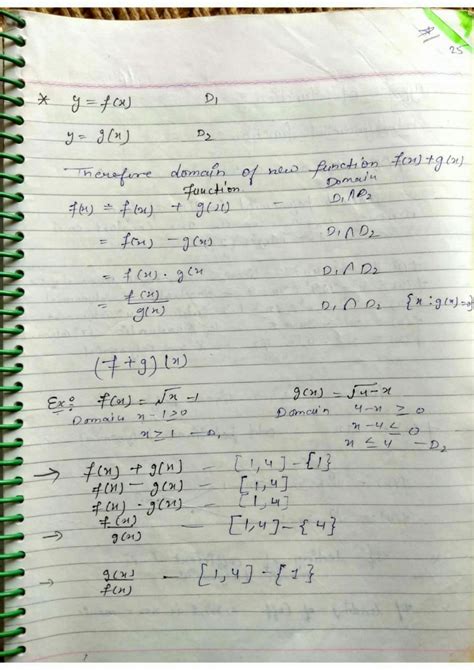 #1
25
* y = f(x) D₁
y = g(x) D₂
Therefore domain of new function f(x)+g(x)
Function Domain
f(x) = f(x) + g(x) - D₁∩D₂
= f(x) - g(x) D₁∩D₂
= f(x) · g(x D₁∩D₂
= f(x)/g(x) D₁∩D₂ {x : g(x)=0}
(f+g)(x)
Ex: f(x) = √x-1 g(x) = √4-x
Domain x-1≥0 Domain 4-x ≥ 0
x≥1 - D₁ x-4 ≤ 0
x ≤ 4 - D₂
→ f(x) + g(x) - [1,4]-{1}
f(x) - g(x) - [1,4]
f(x) · g(x) - [1,4]
→ f(x)/g(x) - [1,4]-{4}
→ g(x)/f(x) - [1,4]-{1}